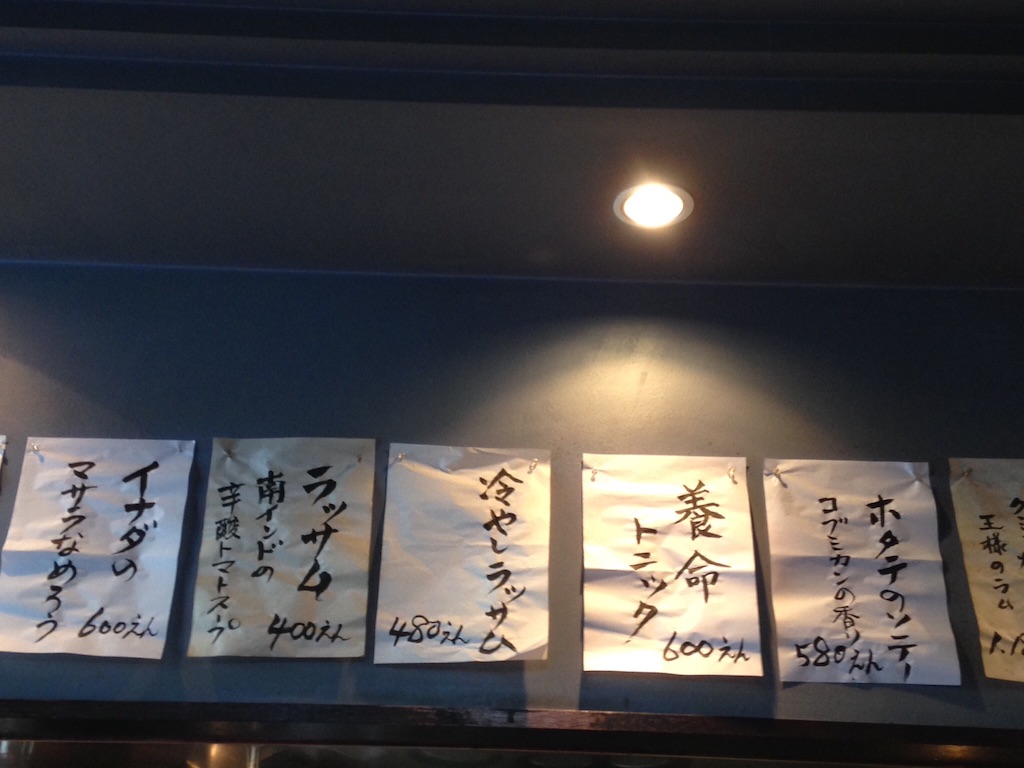 イナダの
マサラなめろう
600えん
ラッサム
南インドの
辛酸トマトスープ
400えん
冷やしラッサム
480えん
養命
トニック
600えん
ホタテのソテー
コブミカンの香り
580えん
王様のラム